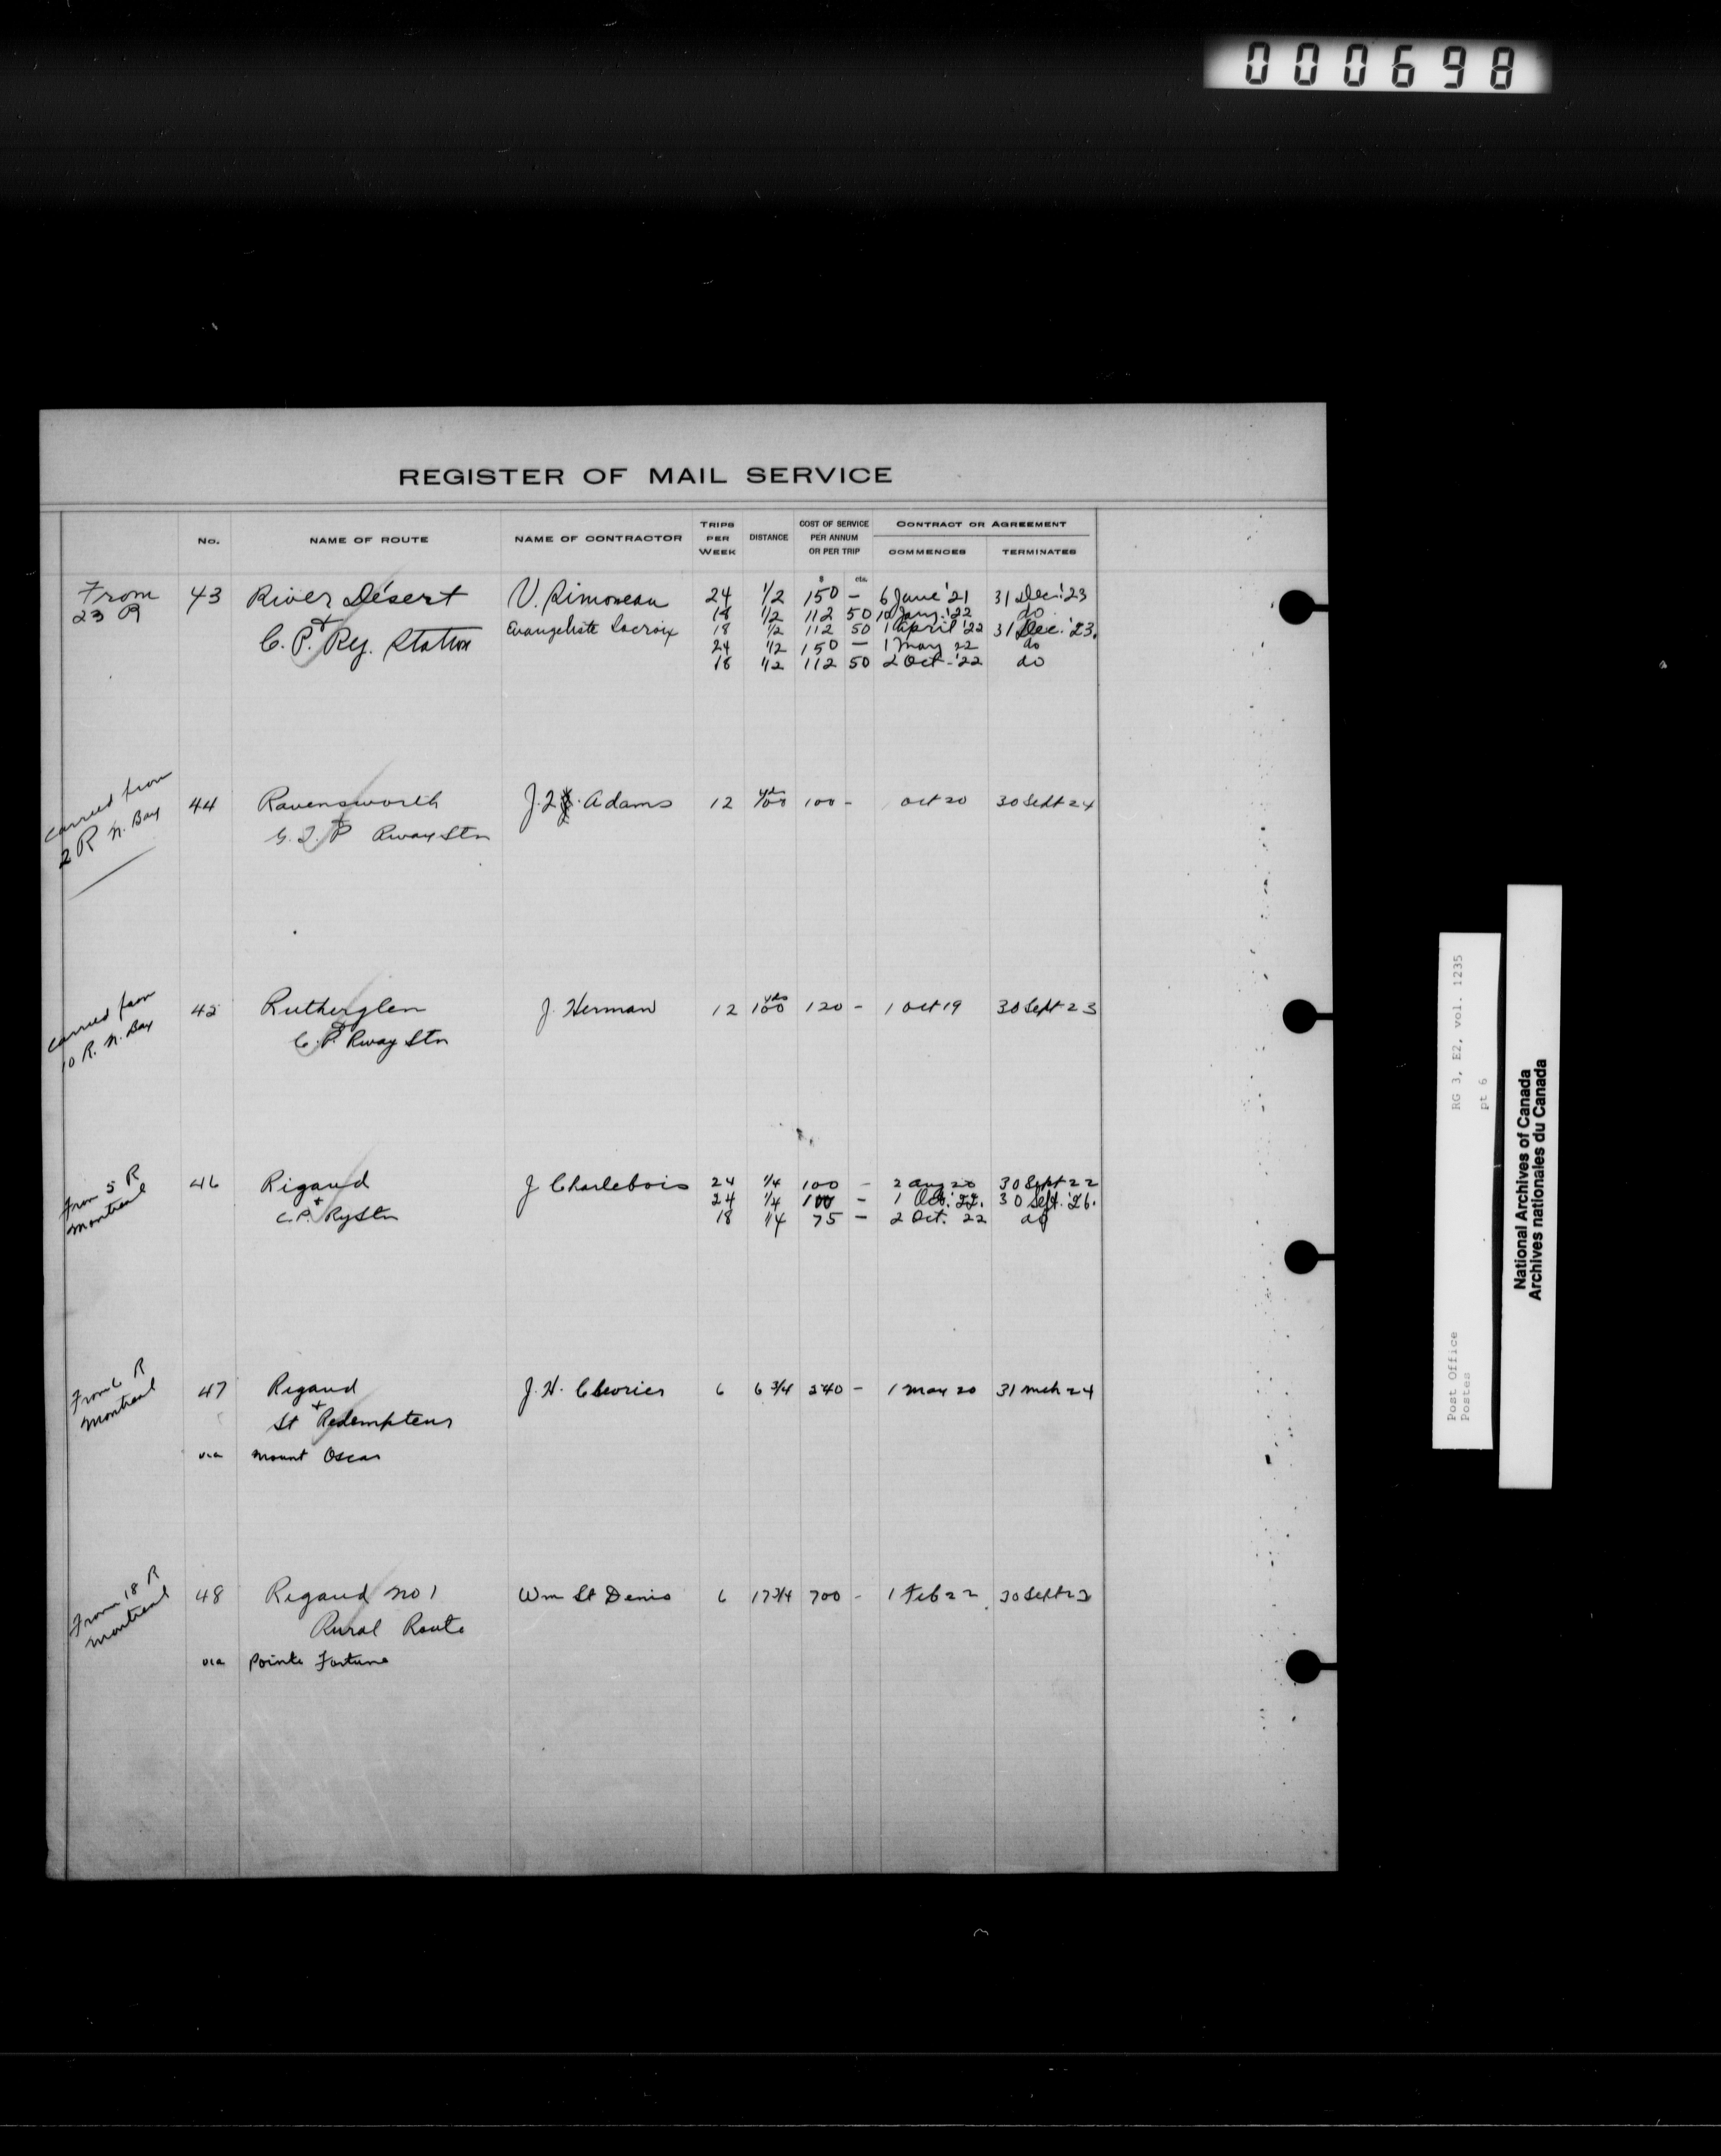 000698
REGISTER OF MAIL SERVICE
No. NAME OF ROUTE NAME OF CONTRACTOR TRIPS PER WEEK DISTANCE COST OF SERVICE PER ANNUM OR PER TRIP CONTRACT OR AGREEMENT COMMENCES TERMINATES
$ cts.
From 43 River Désert V. Rimoneau 24 1/2 150 — 6 June '21 31 Dec. '23
23 R + 18 1/2 112 50 10 Jany. '22 do
C. P. Ry. Station Evangeliste Lacroix 18 1/2 112 50 1 April '22 31 Dec. '23.
24 1/2 150 — 1 May 22 do
18 1/2 112 50 2 Oct - '22 do
Carried from 44 Ravensworth J. Adams 12 yds 100 - Oct 20 30 Sept 24
2 R N. Bay + G. T. P Rway Stn
Carried from 45 Rutherglen J. Herman 12 100 yds 120 - 1 Oct 19 30 Sept 23
10 R. N. Bay & C. P. Rway Stn
From 5 R 46 Rigaud J Charlebois 24 1/4 100 - 2 Aug 20 30 Sept 22
Montreal + 24 1/4 100 - 1 Oct. '22. 30 Sept. '26.
C. P. Ry Stn 18 1/4 75 — 2 Oct. 22 do
From 6 R 47 Rigaud J. H. Chevrier 6 6 3/4 240 - 1 May 20 31 Mch 24
Montreal + St Redempteur
via Mount Oscar
From 18 R 48 Rigaud No 1 Wm St Denis 6 17 3/4 700 - 1 Feb 22 30 Sept 23
Montreal Rural Route
via Pointe Fortune
Post Office RG 3, E2, vol. 1235
Postes pt 6
National Archives of Canada
Archives nationales du Canada